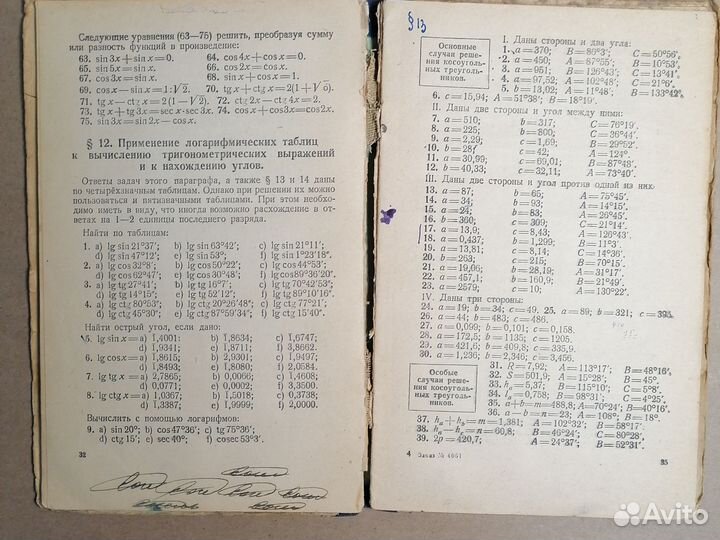 Следующие уравнения (63—75) решить, преобразуя сумму
или разность функций в произведение:
63. sin 3x + sin x = 0. 64. cos 4x + cos x = 0.
65. sin 5x = sin x. 66. cos 2x = cos x.
67. cos 3x = sin x. 68. sin x + cos x = 1.
69. cos x − sin x = 1:√2. 70. tg x + ctg x = 2(1+√5).
71. tg x − ctg x = 2(1−√2). 72. ctg 2x − ctg 4x = 2.
73. tg x + tg 3x = sec x · sec 3x. 74. cos x + cos 3x = cos 2x.
75. sin 3x = sin 2x − cos x.
§ 12. Применение логарифмических таблиц
к вычислению тригонометрических выражений
и к нахождению углов.
Ответы задач этого параграфа, а также § 13 и 14 даны
по четырёхзначным таблицам. Однако при решении их можно
пользоваться и пятизначными таблицами. При этом необхо-
димо иметь в виду, что иногда возможно расхождение в от-
ветах на 1—2 единицы последнего разряда.
Найти по таблицам:
1. a) lg sin 21°37'; b) lg sin 63°42'; c) lg sin 21°11';
d) lg sin 47°12'; e) lg sin 53°; f) lg sin 1°23'18".
2. a) lg cos 32°8'; b) lg cos 50°22'; c) lg cos 44°53';
d) lg cos 62°47'; e) lg cos 30°48'; f) lg cos 89°36'20".
3. a) lg tg 27°41'; b) lg tg 16°7'; c) lg tg 70°42'53";
d) lg tg 14°15'; e) lg tg 52°12'; f) lg tg 89°10'16".
4. a) lg ctg 80°53'; b) lg ctg 20°26'48"; c) lg ctg 77°21';
d) lg ctg 45°30'; e) lg ctg 87°59'34"; f) lg ctg 15'40".
Найти острый угол, если дано:
5. lg sin x = a) 1,4001; b) 1,8634; c) 1,6747;
d) 1,9341; e) 1,8711; f) 3,8662.
6. lg cos x = a) 1,8615; b) 2,9301; c) 1,9497;
d) 1,8493; e) 1,8080; f) 2,0584.
7. lg tg x = a) 2,7865; b) 0,0066; c) 1,4608;
d) 0,0771; e) 0,0002; f) 3,3500.
8. lg ctg x = a) 1,0367; b) 1,5018; c) 0,3738;
d) 1,3387; e) 1,9999; f) 2,0000.
Вычислить с помощью логарифмов:
9. a) sin 20°; b) cos 47°36'; c) tg 75°36';
d) ctg 15'; e) sec 40°; f) cosec 53°3'.
32
§ 13
Основные
случаи реше-
ния косоуголь-
ных треуголь-
ников.
I. Даны стороны и два угла:
1. a = 370; B = 86°3'; C = 50°56'.
2. a = 450; A = 87°55'; B = 10°53'.
3. a = 951; B = 126°43'; C = 13°41'.
4. a = 97,52; A = 102°48'; C = 21°6'.
5. b = 13,02; A = 11°48'; B = 133°42'.
6. c = 15,94; A = 51°38'; B = 18°19'.
II. Даны две стороны и угол между ними:
7. a = 510; b = 317; C = 76°19'.
8. a = 225; b = 800; C = 36°44'.
9. a = 2,29; b = 1,69; C = 29°52'.
10. b = 28; c = 42; A = 124°.
11. a = 30,99; c = 69,01; B = 87°48'.
12. b = 40,33; c = 32,11; A = 73°40'.
III. Даны две стороны и угол против одной из них:
13. a = 87; b = 65; A = 75°45'.
14. a = 34; b = 93; A = 14°15'.
15. a = 24; b = 83; A = 26°45'.
16. b = 360; c = 309; C = 21°14'.
17. a = 13,9; c = 8,43; A = 126°43'.
18. a = 0,437; b = 1,299; B = 11°3'.
19. a = 13,81; b = 8,14; B = 14°36'.
20. b = 263; c = 215; B = 70°15'.
21. a = 19,06; b = 28,19; A = 31°17'.
22. a = 457,1; b = 169,9; B = 21°49'.
23. a = 2579; c = 10; A = 130°22'.
IV. Даны три стороны:
24. a = 19; b = 34; c = 49. 25. a = 89; b = 321; c = 395.
26. a = 44; b = 483; c = 486.
27. a = 0,099; b = 0,101; c = 0,158.
28. a = 172,5; b = 1135; c = 1205.
29. a = 421,6; b = 409,8; c = 335,9.
30. a = 1,236; b = 2,346; c = 3,456.
Особые
случаи реше-
ния косоуголь-
ных треуголь-
ников.
31. R = 7,92; A = 113°17'; B = 48°16'.
32. S = 501,9; A = 15°28'; B = 45°.
33. hₐ = 5,37; B = 115°10'; C = 5°.
34. lₐ = 0,758; B = 98°31'; C = 4°25'.
35. a + b = 488,8; A = 70°24'; B = 40°16'.
36. a − b = n = 23; A = 108°; B = 18°.
37. hₐ + h_b = m = 1,381; A = 102°32'; B = 58°17'.
38. hₐ − h_c = n = 60,8; B = 46°24'; C = 80°28'.
39. 2p = 420,7; A = 24°37'; B = 52°31'.
4 Заказ № 4061
35
Avito